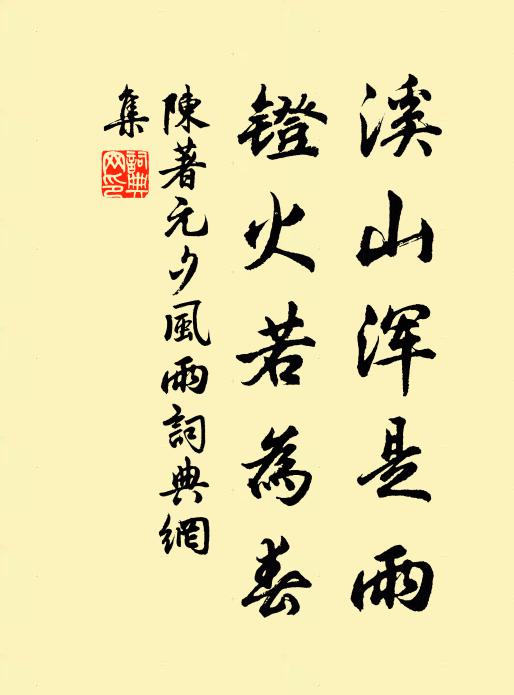 溪山浑是雨
鐙火若為春
陳著元夕風雨詞典網
集
詞典
网印